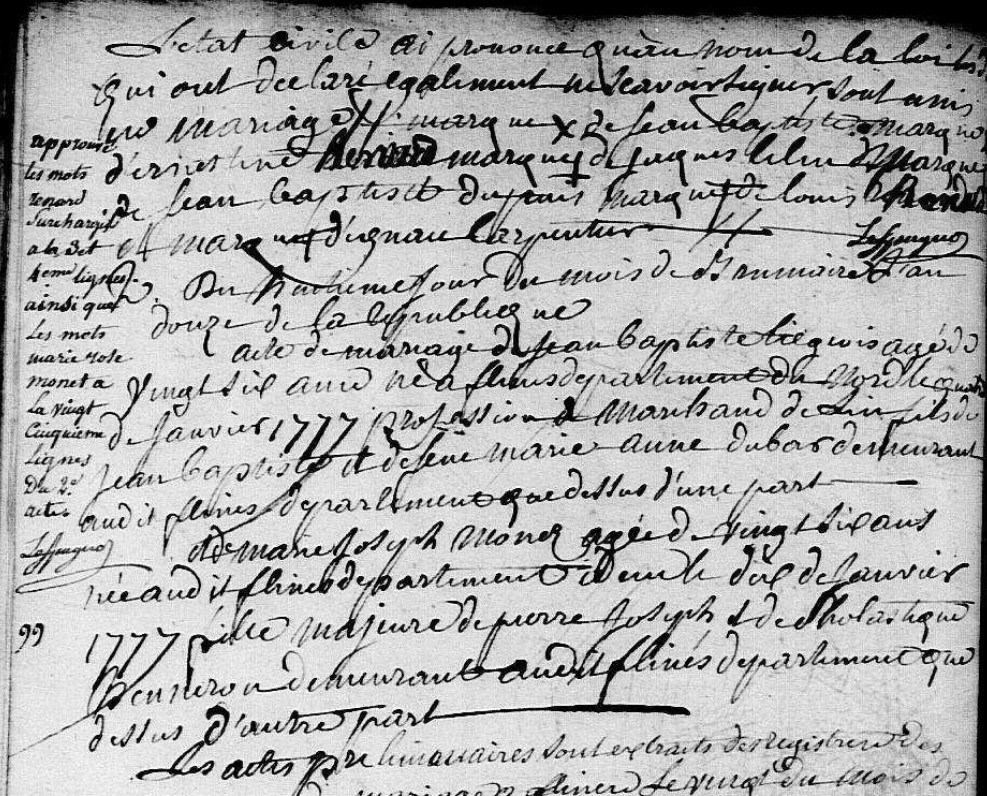 L'etat civile ai prononcé qu'au nom de la loi les
qui ont declaré egalement ne scavoir signer sont unis
en mariage // marque X de Jean baptiste marque
d'ernestine Renard marque de jaques marque
de Jean baptiste dupuis marque de louis
et marque d'ignace Carpentier //
Lespagnol
approuvé
les mots
renard
Surchargés
a la 3 et
4eme lignes
ainsi que
les mots
marie rose
monet a
La vingt
Cinquieme
Lignes
Du 2e
acte
Lespagnol
99
Du huitieme Jour du mois de Brumaire L'an
douze de la Republique
acte de mariage de Jean baptiste liegeois agé de
vingt six ans né a flines departement du Nord le
de Janvier 1777 profession de Marchand de Lin fils de
Jean baptiste et de feue marie anne dubar demeurant
audit flines departement que dessus d'une part
et de marie Joseph Monez agée de vingt six ans
née audit flines departement idem le dix de Janvier
1777 fille majeure de pierre Joseph & de Scholastique
demeurant audit flines departement que
dessus d'autre part
Les actes preliminaires sont extraits des registres des
mariages flines le vingt du mois de